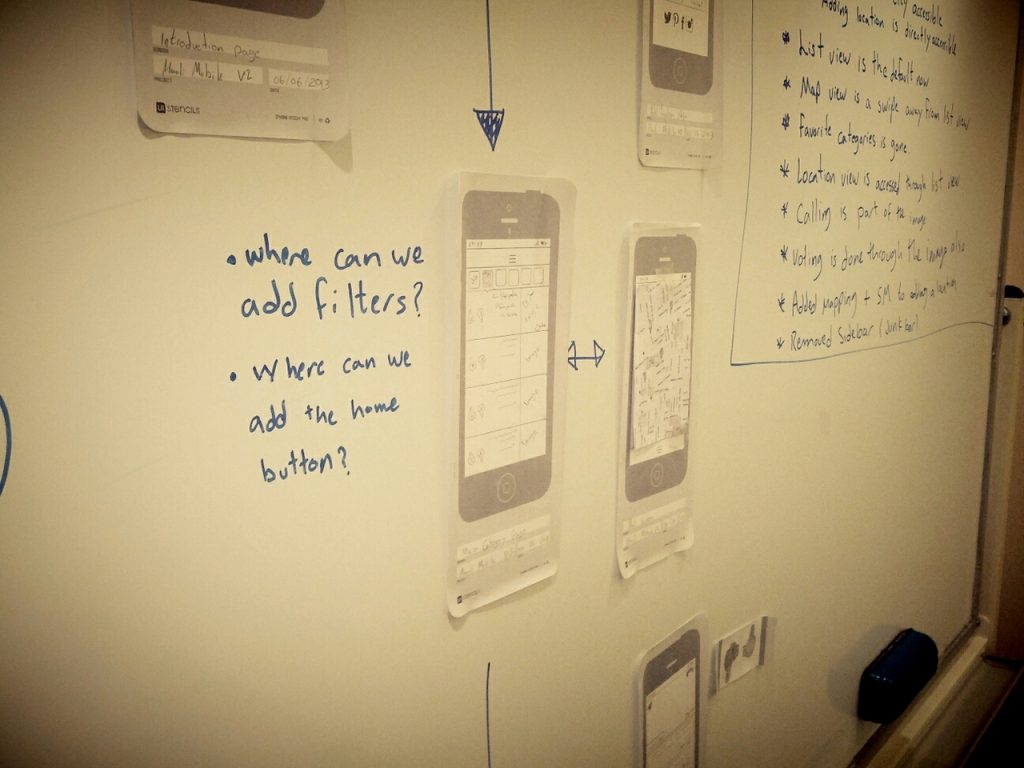 Introduction page
Mobile V2 06/06/2013
UI STENCILS
• where can we
add filters?
• Where can we
add the home
button?
accessible
Adding location is directly accessible
* List view is the default now
* Map view is a swipe away from list view
* Favorite categories is gone.
* Location view is accessed through list view
* Calling is part of the image
* Voting is done through the image also
* Added mapping + SM to adding a location
* Removed Sidebar (Junk bar)